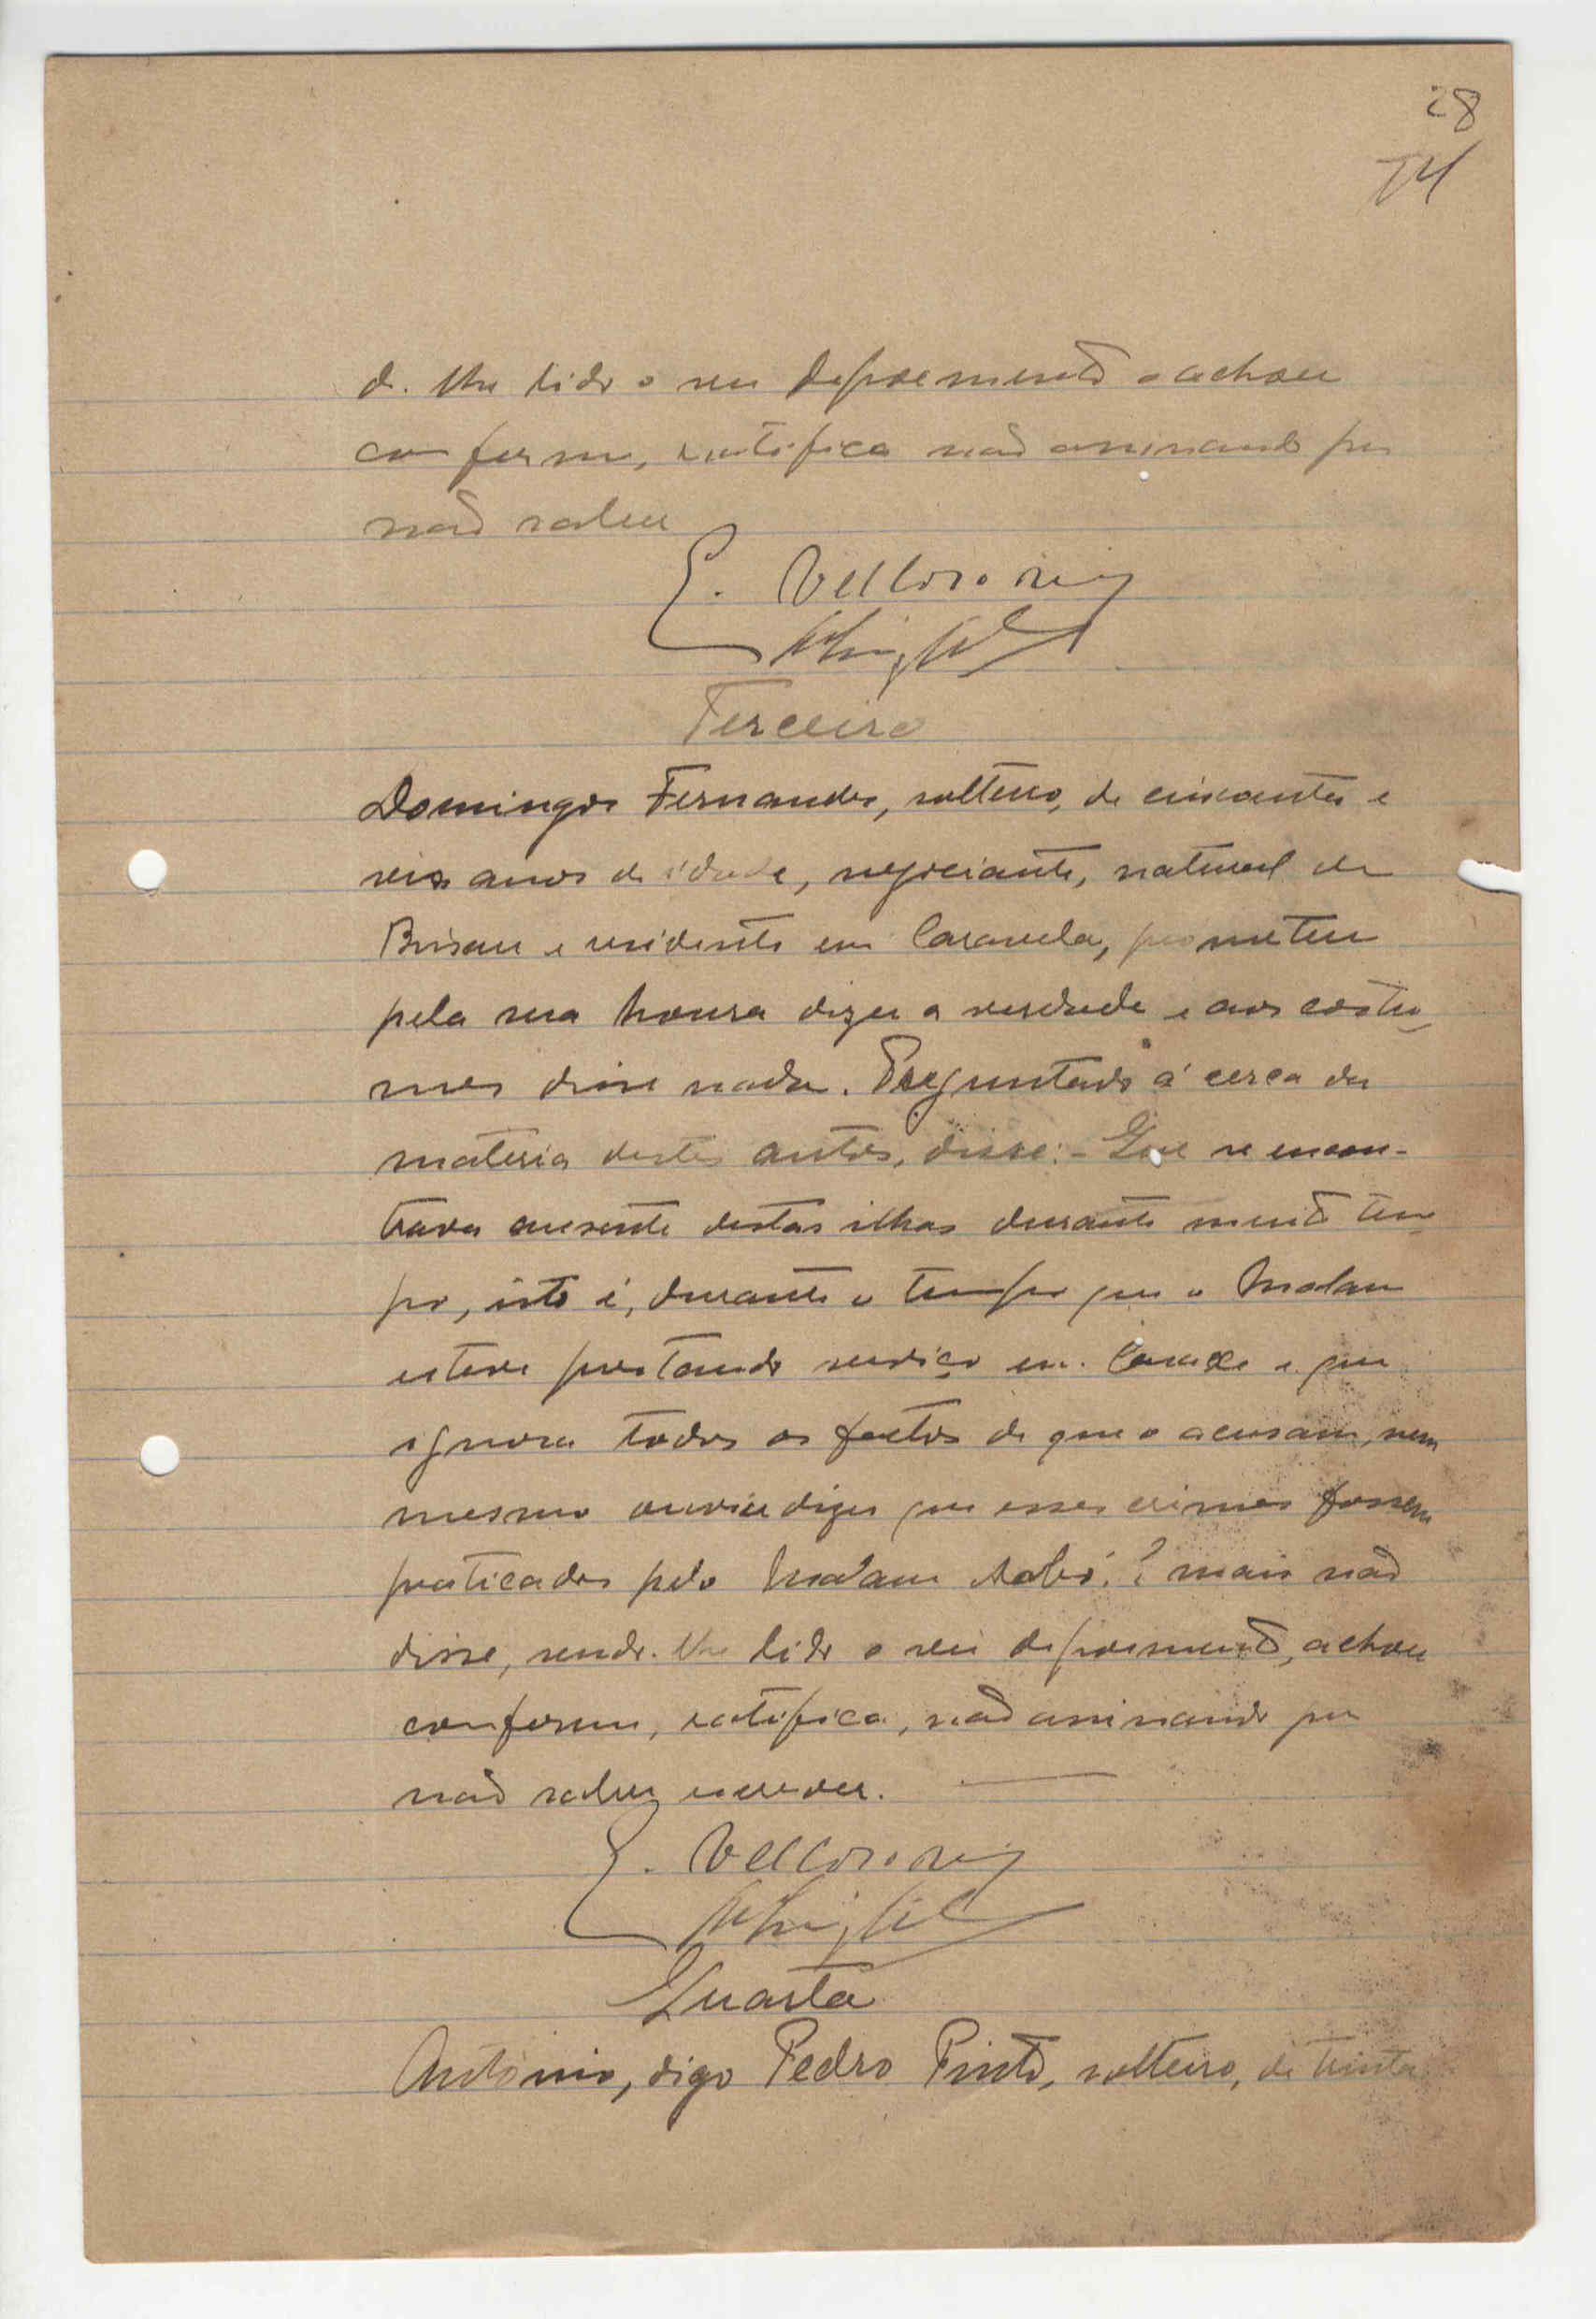 28
14
do-lhe lido o seu depoemento o achou
conforme, ratifica não assinando por
não saber
E. Velloso
Terceiro
Domingos Fernandes, solteiro, de cincoenta e
seis anos de idade, negociante, natural de
Bissau e residente em Caravela, prometeu
pela sua honra dizer a verdade e aos costu-
mes disse nada. Preguntado á cerca da
materia destes autos, disse:- Que se encon-
trava ausente destas ilhas durante muito tem-
po, isto é, durante o tempo que o Malam
esteve prestando serviço em e que
ignora todos os factos de que o acusam, nem
mesmo ouviu dizer que esses crimes fossem
praticados pelo Malam E mais não
disse, sendo-lhe lido o seu depoemento, achou
conforme, ratifica, não assinando por
não saber escrever.
E. Velloso
Quarta
António, digo Pedro Pinto, solteiro, de trinta